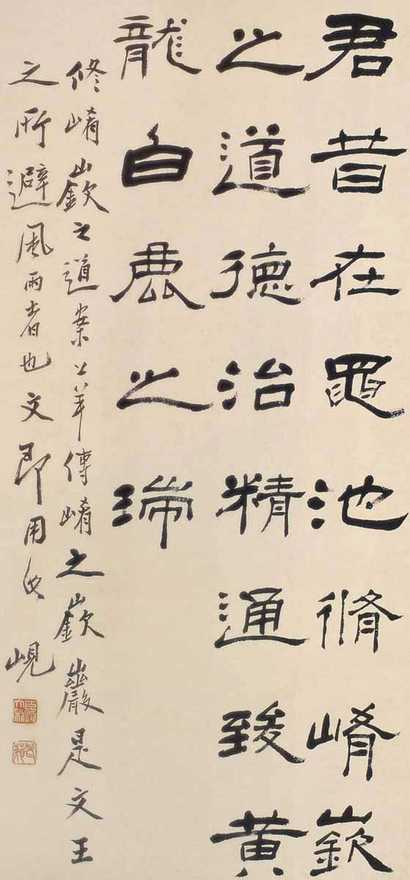 君昔在黽池脩崤嶔
之道德治精通致黃
龍白鹿之瑞
修崤嶔之道案公羊傳崤之嶔巖是文王
之所避風雨者也文即用此 峴